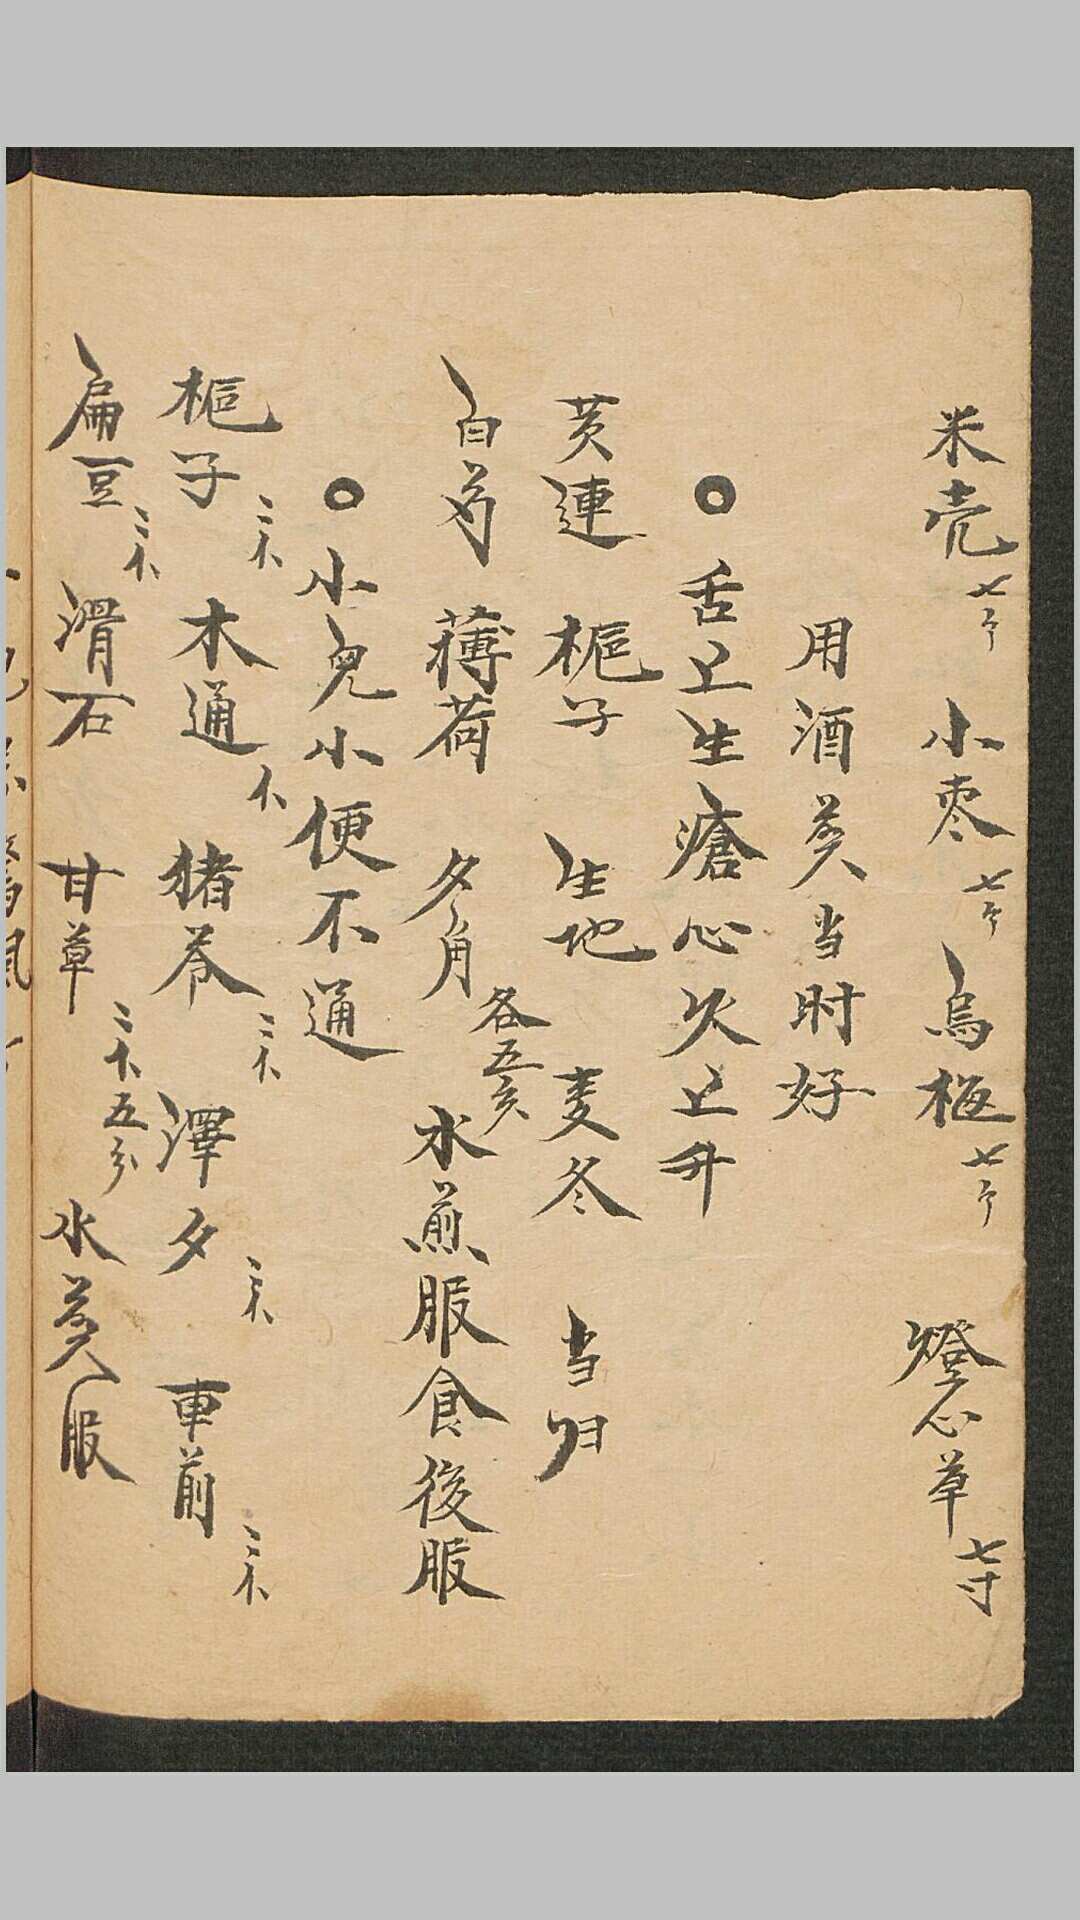 米壳七个 小枣七个 烏梅七个 燈心草七寸
用酒煎当时好
舌上生瘡心火上升
黄連 梔子 生地 麦冬 当归
白芍 薄荷 各五分 水煎服食後服
小兒小便不通
梔子 木通 猪苓 澤夕 車前
扁豆 滑石 甘草 五分 水煎服